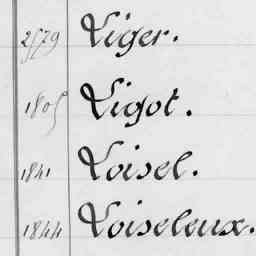 2579 Liger.
1805 Ligot.
1841 Loisel.
1844 Loiseleux.